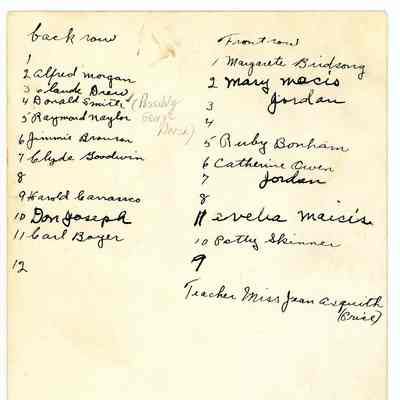 back row
1
2 Alfred Morgan
3 Claude Drew
4 Donald Smith (Possibly George Marsh)
5 Raymond Naylor
6 Jimmie Bronson
7 Clyde Goodwin
8
9 Harold Carrasco
10 Don Joseph
11 Carl Boyer
12
Front row
1 Margarete Birdsong
2 Mary macis
3 Jordan
4
5 Ruby Bonham
6 Catherine Owen
7 Jordan
8
11 evelia Maicis
10 Patty Skinner
9
Teacher Miss Jean Asquith
(Price)